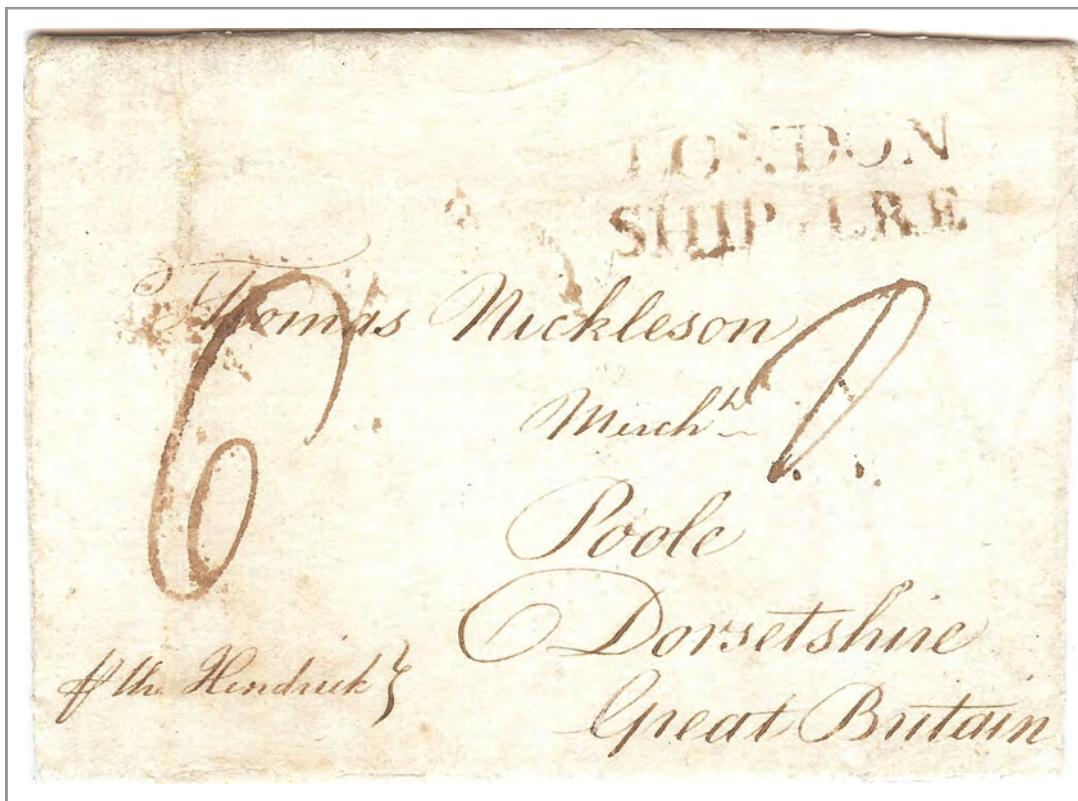 LONDON
SHIP LRE
Thomas Nickleson
Merch.t
Poole
Dorsetshire
Great Britain
6
⅌ the Hendrick